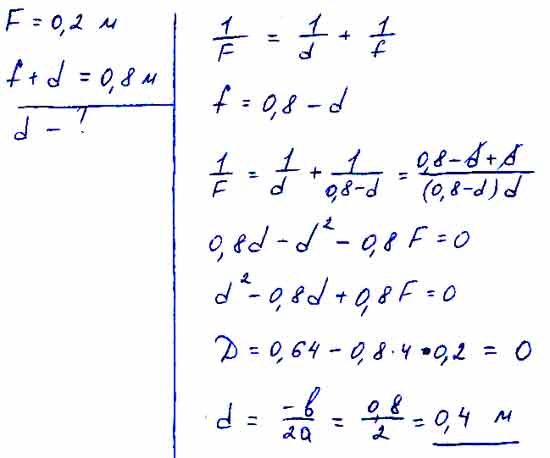 F = 0,2 м
f + d = 0,8 м
d - ?
1/F = 1/d + 1/f
f = 0,8 - d
1/F = 1/d + 1/(0,8-d) = (0,8-d+d)/((0,8-d)d)
0,8d - d² - 0,8F = 0
d² - 0,8d + 0,8F = 0
D = 0,64 - 0,8·4·0,2 = 0
d = -в/2a = 0,8/2 = 0,4 м